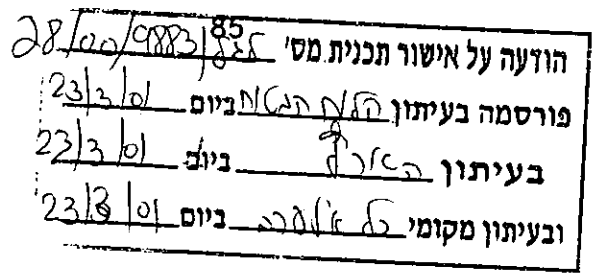 הודעה על אישור תכנית מס' 28/00/9883/85
פורסמה בעיתון ביום 23/3/01
בעיתון הארץ ביום 23/3/01
ובעיתון מקומי כל ביום 23/3/01